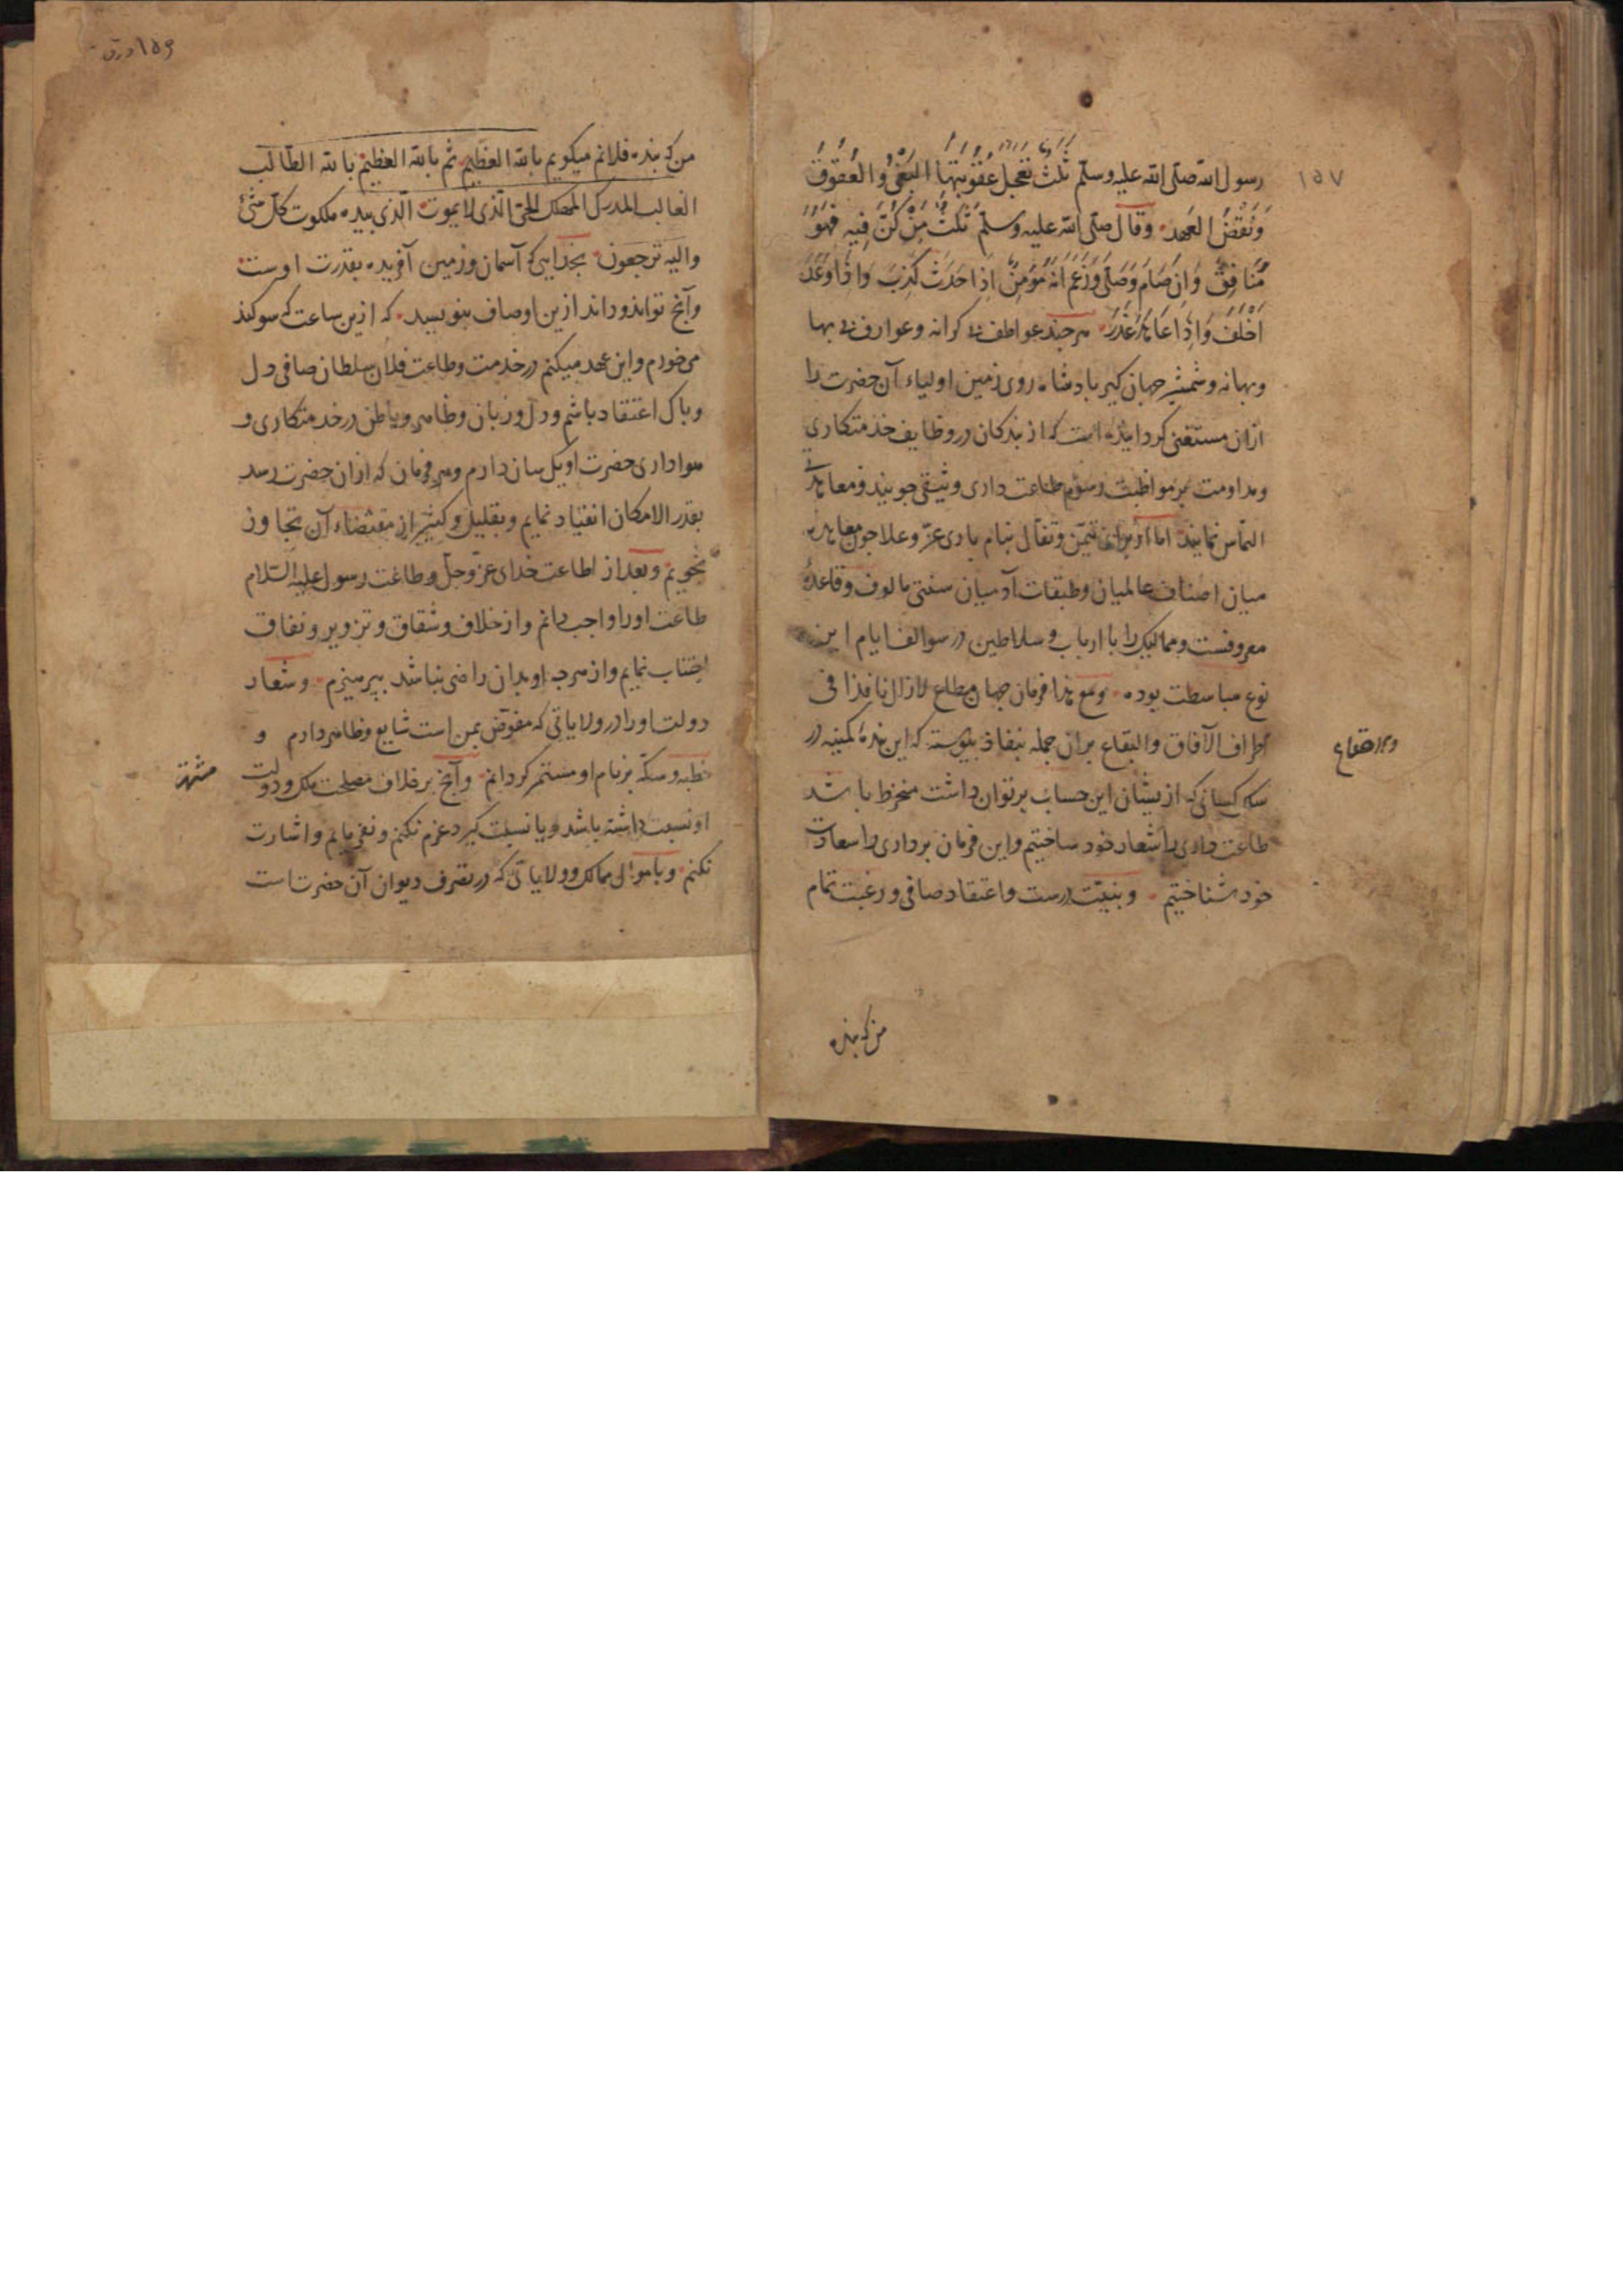 ١٥٧
رسول الله صلی الله علیه وسلم ثلث تعجل عقوبتها البغی والعقوق
ونقض العهد وقال صلی الله علیه وسلم ثلث من کن فیه فهو
منافق وان صام وصلی وزعم انه مؤمن اذا حدث کذب واذا وعد
اخلف واذا عاهد غدر هرجند عواطف بی کرانه وعوارف بی بها
وبهانه وشمشیر جهان کیر بادشاه روی زمین اولیاء آن حضرت را
ازان مستغنی کردانیده است که از بندکان در وظایف خذمتکاری
ومداومت بر مواظبت رسوم طاعت داری وثیقتی جویند ومعاهدتی
التماس نمایند اما از برای تیمن وتفأل بنام باری عز وعلا جون معاهده
میان اصناف عالمیان وطبقات آدمیان سنتی مالوف وقاعدهٔ
معروفست وممالیک را با ارباب وسلاطین در سوالف ایام این
نوع مباسطت بوده ومع هذا فرمان جهان مطاع لازال نافذا فی
اطراف الآفاق والبقاع بران جمله بنفاذ بیوسته که این بندهٔ کمینه در
سلک کسانی که ازیشان این حساب برتوان داشت منخرط باشد
طاعت داری را شعار خود ساختیم واین فرمان برداری را سعادت
خود شناختیم وبنیت درست واعتقاد صافی ورغبت تمام
من که بنده
١٥٩ ورق
من که بنده فلانم میکویم بالله العظیم ثم بالله العظیم بالله الطالب
الغالب المدرک المهلک الحی الذی لایموت الذی بیده ملکوت کل شئ
والیه ترجعون بخدایی که آسمان وزمین آفریده بقدرت اوست
وآنج تواند وداند ازین اوصاف بنویسد که ازین ساعت که سوکند
می خورم واین عهد میکنم در خدمت وطاعت فلان سلطان صافی دل
وباک اعتقاد باشم ودل وزبان وظاهر وباطن در خدمتکاری و
هواداری حضرت او یکسان دارم وهر فرمان که ازان حضرت رسد
بقدر الامکان انقیاد نمایم وبقلیل وکثیر از مقتضاء آن تجاوز
نجویم وبعد از اطاعت خدای عز وجل وطاعت رسول علیه السلام
طاعت او را واجب دانم واز خلاف وشقاق وتزویر ونفاق
اجتناب نمایم واز هرجه او بدان راضی نباشد ببرهیزم وشعار
دولت او را در ولایاتی که مفوض بمن است شایع وظاهر دارم و
خطبه وسکه بر نام او مستمر کردانم وآنج برخلاف مصلحت ملک ودولت
او نسبت داشته باشد ویا نسبت کیرد عزم نکنم ونفرمایم واشارت
نکنم وباموال ممالک وولایاتی که در تصرف دیوان آن حضرت است